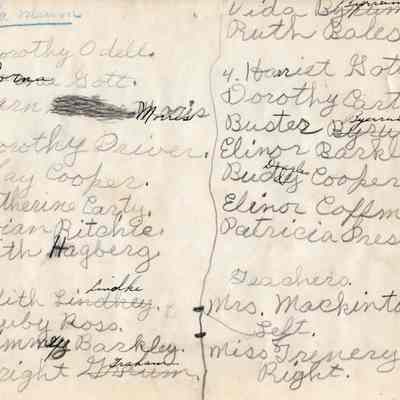 Mason
orothy Odell.
Gott.
arn Morris
orothy Driver.
ay Cooper.
therine Carty.
ian Ritchie
th Hagberg
Lindke
ith Lindney.
uby Ross.
mmey Barkley.
Graham
right
Vida
Ruth Bales
4. Harrist Gott
Dorothy Cart
Buster
Elinor Barkl
Douglas
Buddy Cooper
Elinor Coffm
Patricia Pres
Teachers.
Mrs. Mackinto
Left.
Miss Trenery
Right.